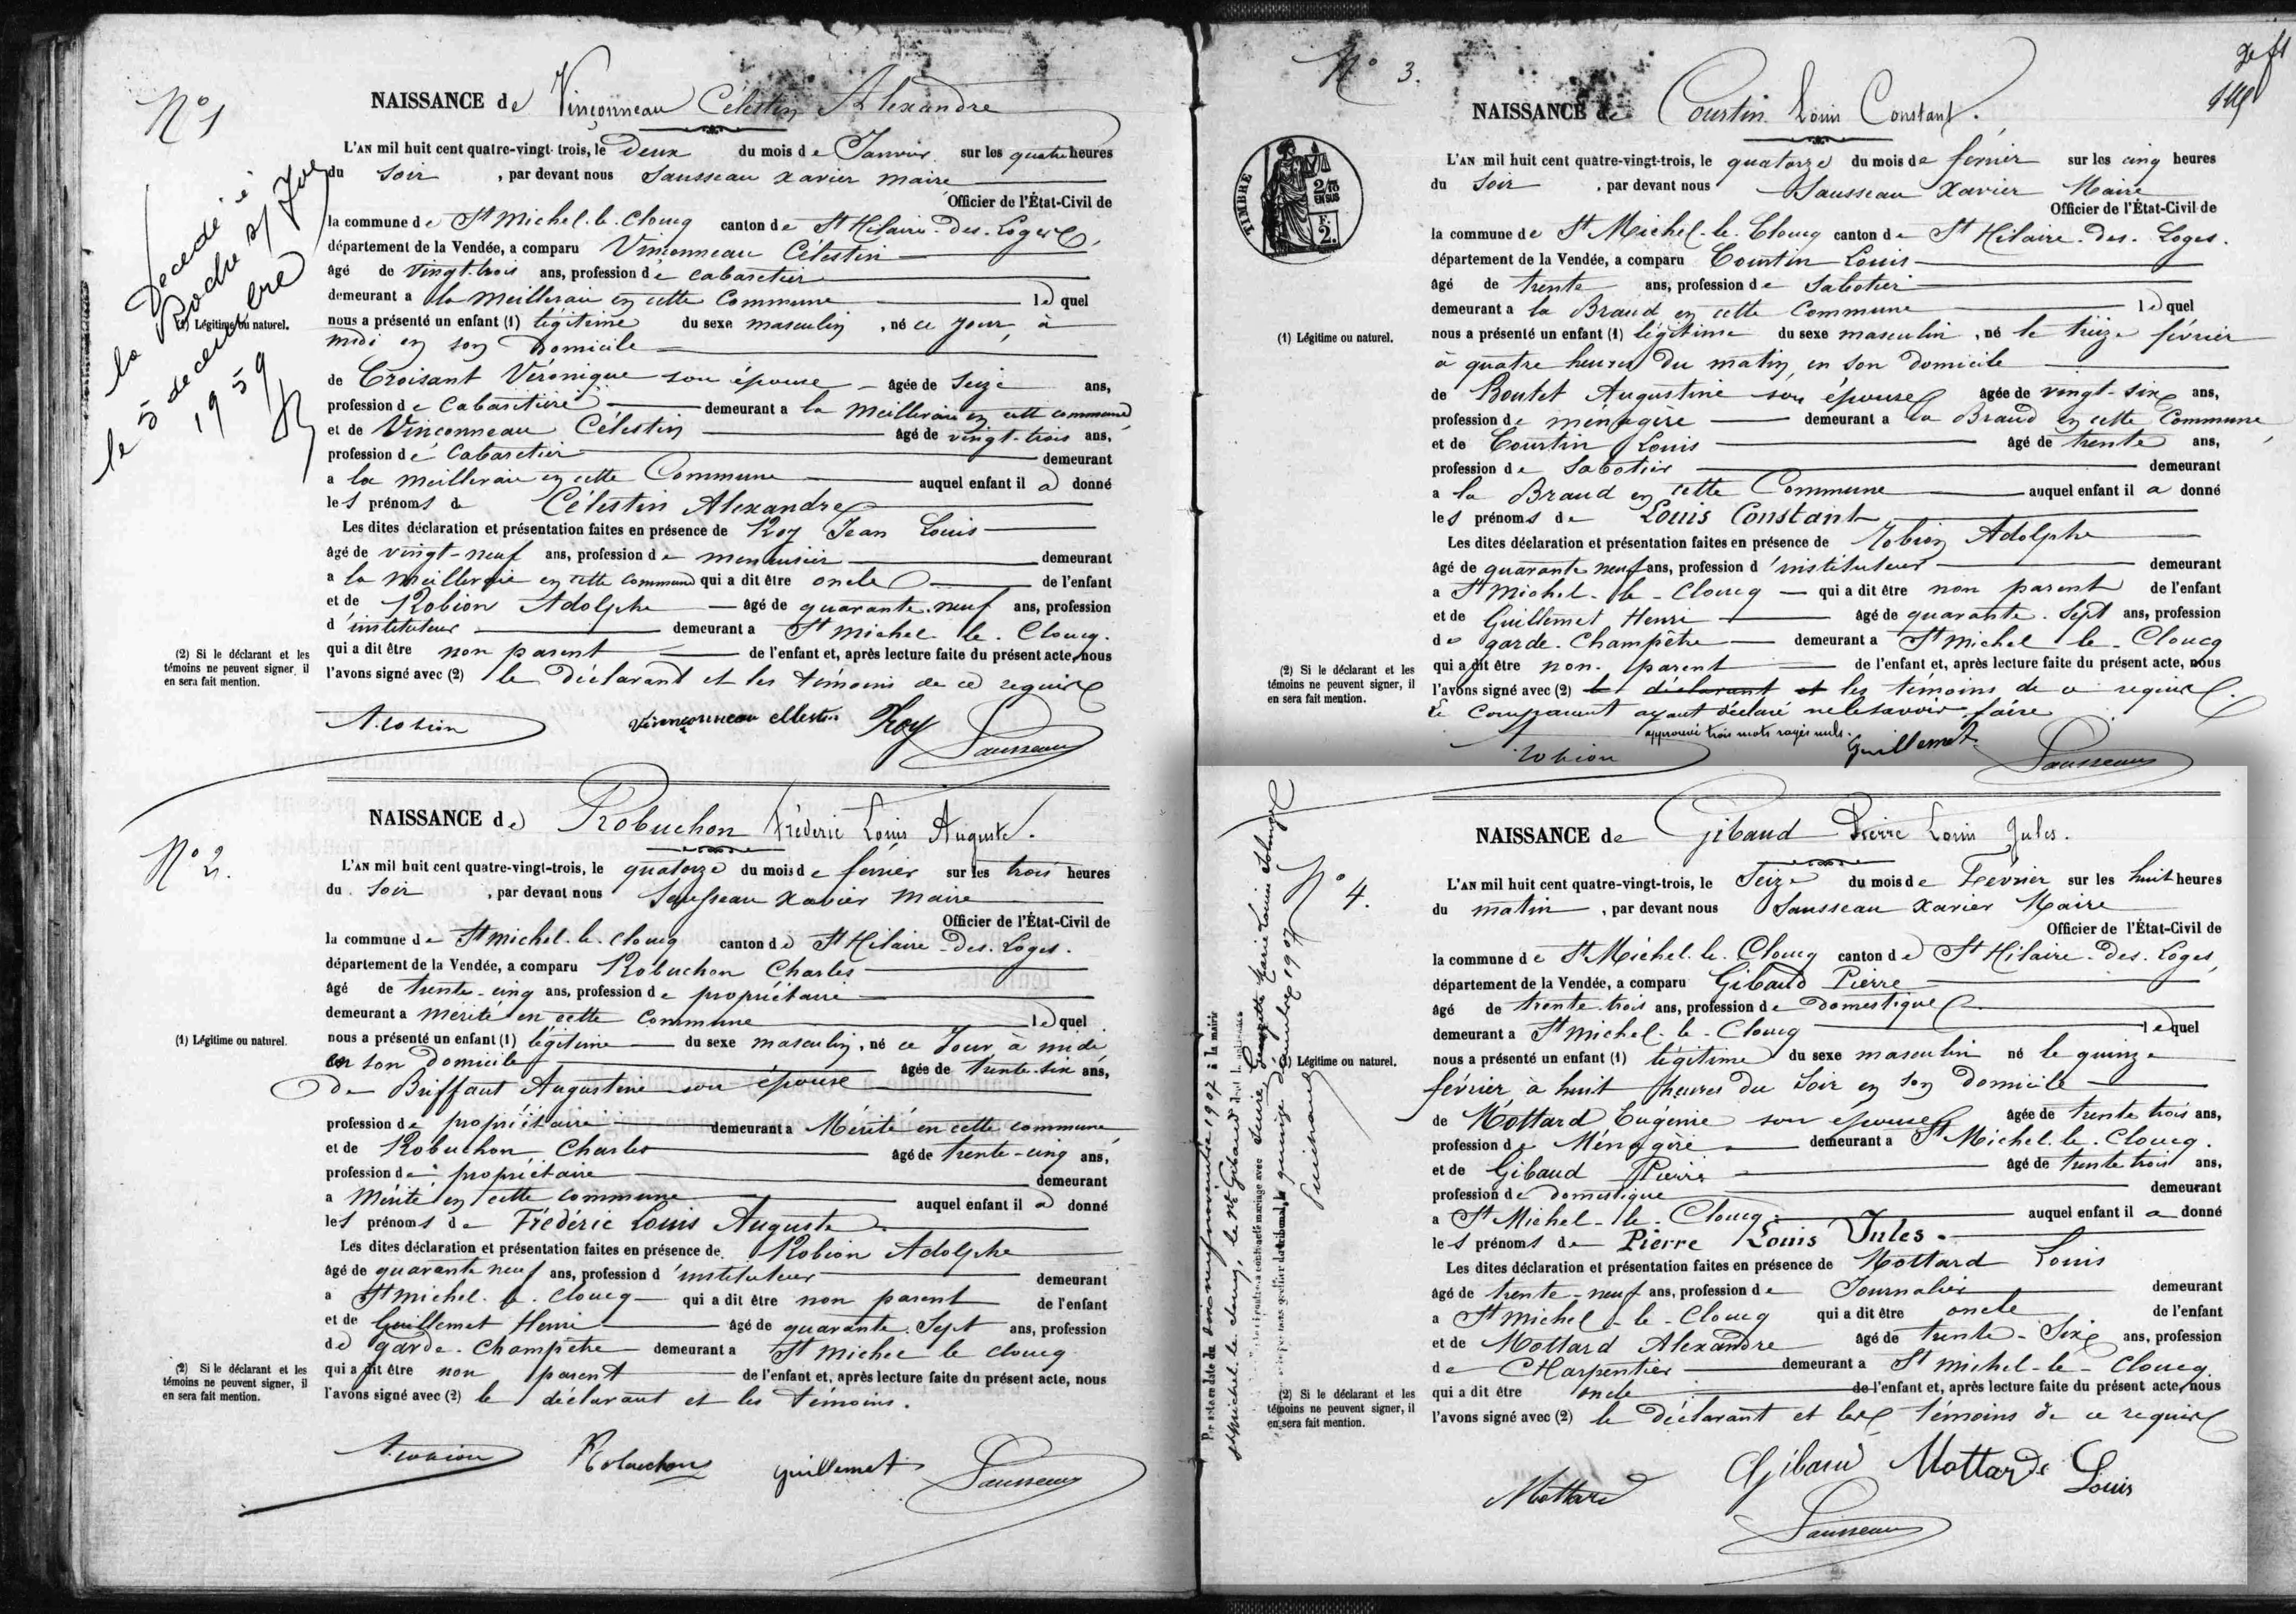 N° 1
NAISSANCE de Vinçonneau Célestin Alexandre
L'AN mil huit cent quatre-vingt-trois, le deux du mois de Janvier sur les quatre heures
du soir, par devant nous Sausseau Xavier maire
Officier de l'État-Civil de
la commune de St Michel-le-Cloucq canton de St Hilaire-des-Loges,
département de la Vendée, a comparu Vinçonneau Célestin
âgé de vingt-trois ans, profession de cabaretier
demeurant a la Meilleraie en cette commune lequel
nous a présenté un enfant (1) légitime du sexe masculin, né ce jour, à
midi en son domicile
de Croisant Véronique son épouse âgée de seize ans,
profession de cabaretière demeurant a la Meilleraie en cette commune
et de Vinçonneau Célestin âgé de vingt-trois ans,
profession de cabaretier demeurant
a la Meilleraie en cette Commune auquel enfant il a donné
les prénoms de Célestin Alexandre
Les dites déclaration et présentation faites en présence de Roy Jean Louis
âgé de vingt-neuf ans, profession de menuisier demeurant
a la Meilleraie en cette commune qui a dit être oncle de l'enfant
et de Robion Adolphe âgé de quarante-neuf ans, profession
d'instituteur demeurant a St Michel-le-Cloucq.
qui a dit être non parent de l'enfant et, après lecture faite du présent acte, nous
l'avons signé avec (2) le déclarant et les témoins de ce requis
A. Robion Vinçonneau célestin Roy Sausseau
Décédé à
la Roche s/ Yon
le 5 décembre
1959
(1) Légitime ou naturel.
(2) Si le déclarant et les
témoins ne peuvent signer, il
en sera fait mention.
N° 2.
NAISSANCE de Robuchon Fréderic Louis Auguste.
L'AN mil huit cent quatre-vingt-trois, le quatorze du mois de fevrier sur les trois heures
du soir, par devant nous Sausseau Xavier Maire
Officier de l'État-Civil de
la commune de St Michel-le-Cloucq canton de St Hilaire-des-Loges.
département de la Vendée, a comparu Robuchon Charles
âgé de trente-cinq ans, profession de propriétaire
demeurant a Mérité en cette commune lequel
nous a présenté un enfant (1) légitime du sexe masculin, né ce jour à midi
en son domicile âgée de trente-six ans,
de Briffaut Augustine son épouse
profession de propriétaire demeurant a Mérité en cette commune
et de Robuchon Charles âgé de trente-cinq ans,
profession de propriétaire demeurant
a Mérité en cette commune auquel enfant il a donné
les prénoms de Frédéric Louis Auguste
Les dites déclaration et présentation faites en présence de Robion Adolphe
âgé de quarante neuf ans, profession d'instituteur demeurant
a St Michel-le-Cloucq qui a dit être non parent de l'enfant
et de Guillemet Henri âgé de quarante-sept ans, profession
de garde-champêtre demeurant a St Michel le Cloucq
qui a dit être non parent de l'enfant et, après lecture faite du présent acte, nous
l'avons signé avec (2) le déclarant et les témoins.
A. Robion Robuchon Guillemet Sausseau
(1) Légitime ou naturel.
(2) Si le déclarant et les
témoins ne peuvent signer, il
en sera fait mention.
N° 3.
NAISSANCE de Courtin Louis Constant.
TIMBRE
2/10
EN SUS
F.
2.
L'AN mil huit cent quatre-vingt-trois, le quatorze du mois de fevrier sur les cinq heures
du soir, par devant nous Sausseau Xavier Maire
Officier de l'État-Civil de
la commune de St Michel-le-Cloucq canton de St Hilaire-des-Loges.
département de la Vendée, a comparu Courtin Louis
âgé de trente ans, profession de sabotier
demeurant a la Braud en cette commune lequel
nous a présenté un enfant (1) légitime du sexe masculin, né le treize février
à quatre heures du matin, en son domicile
de Boutet Augustine son épouse âgée de vingt-six ans,
profession de ménagère demeurant a la Braud en cette Commune,
et de Courtin Louis âgé de trente ans,
profession de sabotier demeurant
a la Braud en cette Commune auquel enfant il a donné
les prénoms de Louis Constant
Les dites déclaration et présentation faites en présence de Robion Adolphe
âgé de quarante neuf ans, profession d'instituteur demeurant
a St Michel-le-Cloucq qui a dit être non parent de l'enfant
et de Guillemet Henri âgé de quarante-sept ans, profession
de garde-Champêtre demeurant a St Michel le Cloucq
qui a dit être non parent de l'enfant et, après lecture faite du présent acte, nous
l'avons signé avec (2) le déclarant et les témoins de ce requis.
Le comparant ayant déclaré ne le savoir faire
approuvé trois mots rayés nuls.
Robion Guillemet Sausseau
(1) Légitime ou naturel.
(2) Si le déclarant et les
témoins ne peuvent signer, il
en sera fait mention.
N° 4.
NAISSANCE de Gibaud Pierre Louis Jules.
L'AN mil huit cent quatre-vingt-trois, le Seize du mois de Février sur les huit heures
du matin, par devant nous Sausseau Xavier Maire
Officier de l'État-Civil de
la commune de St Michel-le-Cloucq canton de St Hilaire-des-Loges,
département de la Vendée, a comparu Gibaud Pierre
âgé de trente-trois ans, profession de domestique
demeurant a St Michel-le-Cloucq lequel
nous a présenté un enfant (1) légitime du sexe masculin né le quinze
février à huit heures du soir en son domicile
de Mottard Eugénie son épouse âgée de trente trois ans,
profession de Ménagère demeurant a St Michel-le-Cloucq.
et de Gibaud Pierre âgé de trente trois ans,
profession de domestique demeurant
a St Michel-le-Cloucq auquel enfant il a donné
les prénoms de Pierre Louis Jules.
Les dites déclaration et présentation faites en présence de Mottard Louis
âgé de trente-neuf ans, profession de Journalier demeurant
a St Michel-le-Cloucq qui a dit être oncle de l'enfant
et de Mottard Alexandre âgé de trente-six ans, profession
de Charpentier demeurant a St Michel-le-Cloucq
qui a dit être oncle de l'enfant et, après lecture faite du présent acte, nous
l'avons signé avec (2) le déclarant et les témoins de ce requis
Mottard Gibaud Mottard Louis
Sausseau
(1) Légitime ou naturel.
(2) Si le déclarant et les
témoins ne peuvent signer, il
en sera fait mention.